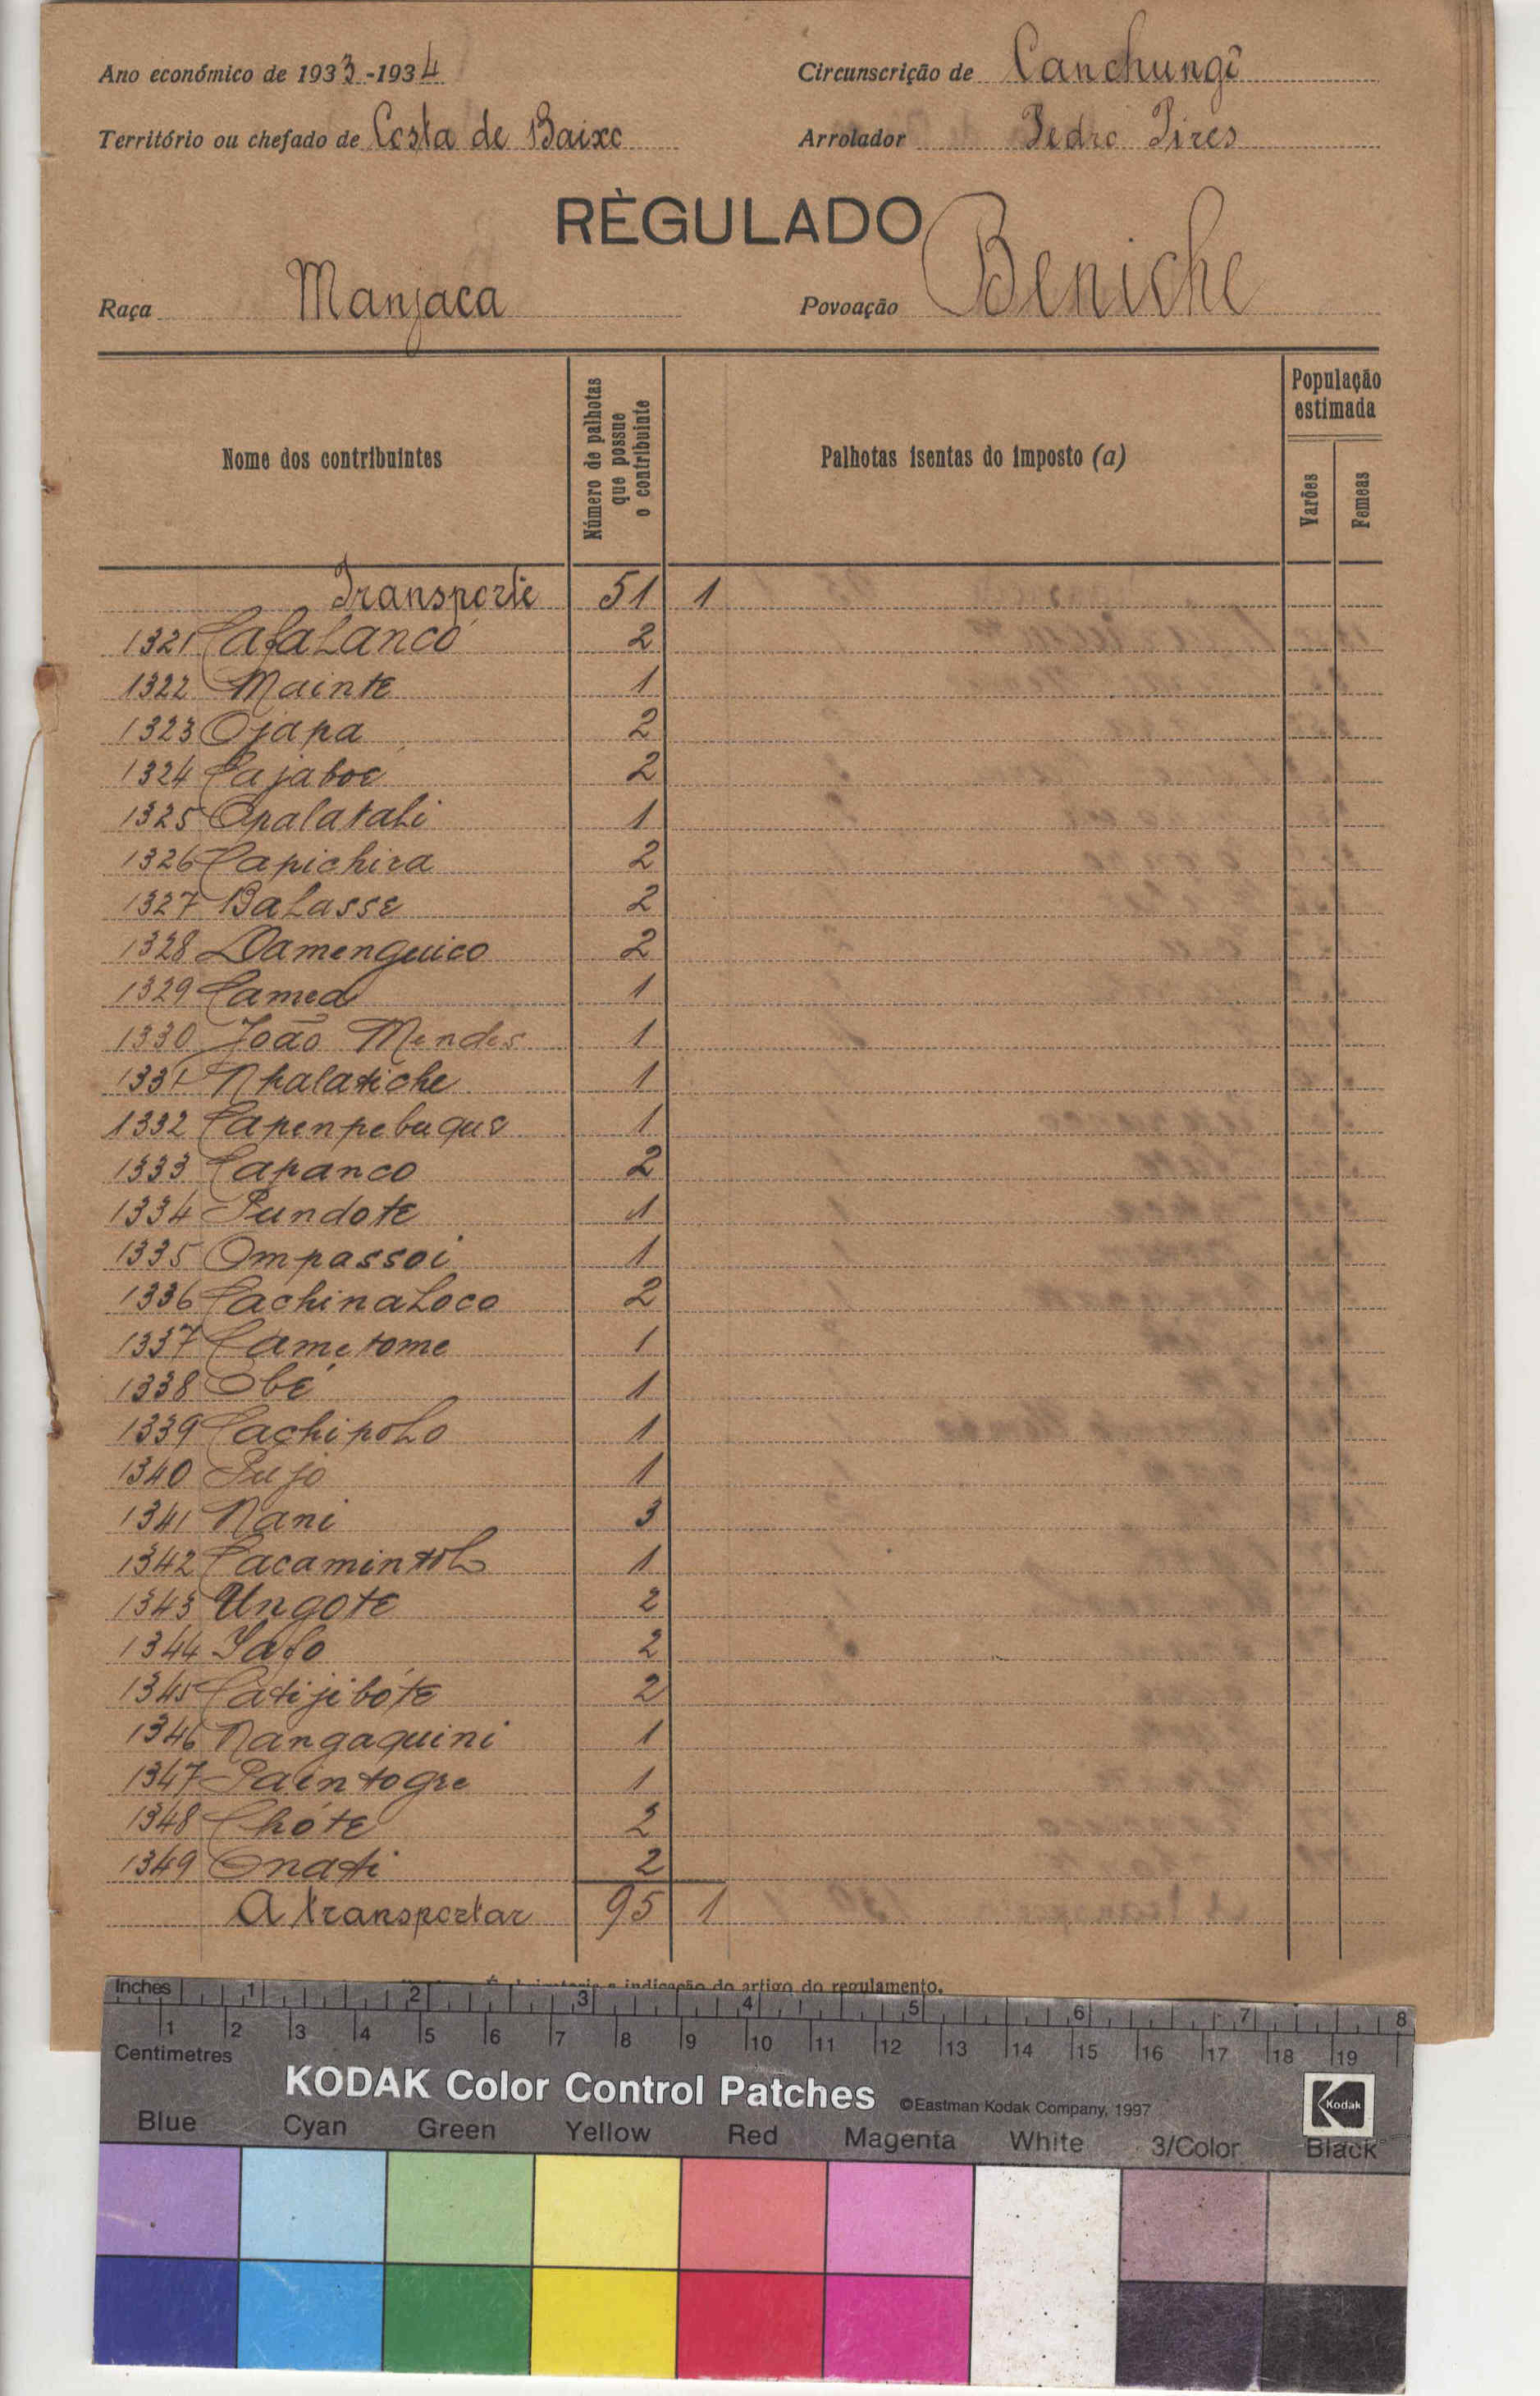 Ano económico de 1933-1934 Circunscrição de Canchungo
Território ou chefado de Costa de Baixo Arrolador Pedro Pires
RÈGULADO
Raça Manjaca Povoação Beniche
Nome dos contribuintes
Número de palhotas que possue o contribuinte
Palhotas isentas do imposto (a)
População estimada
Varões
Femeas
Transporte 51 1
1321 Cafalancó 2
1322 Mainte 1
1323 Ojapa 2
1324 Cajaboé 2
1325 Opalatali 1
1326 Capichira 2
1327 Balasse 2
1328 Damenguico 2
1329 Camea 1
1330 João Mendes 1
1331 Npalatiche 1
1332 Capenpebuque 1
1333 Capanco 2
1334 Pundote 1
1335 Ompassoi 1
1336 Cachinaloco 2
1337 Cametome 1
1338 Obé 1
1339 Cachipolo 1
1340 Pujo 1
1341 Nani 3
1342 Cacamintol 1
1343 Ungote 2
1344 Jafo 2
1345 Catijibóte 2
1346 Nangaquini 1
1347 Paintogre 1
1348 Chóte 2
1349 Onati 2
A transportar 95 1
indicação do artigo do regulamento.
Inches 1 2 3 4 5 6 7 8
1 2 3 4 5 6 7 8 9 10 11 12 13 14 15 16 17 18 19
Centimetres
KODAK Color Control Patches ©Eastman Kodak Company, 1997 Kodak
Blue Cyan Green Yellow Red Magenta White 3/Color Black